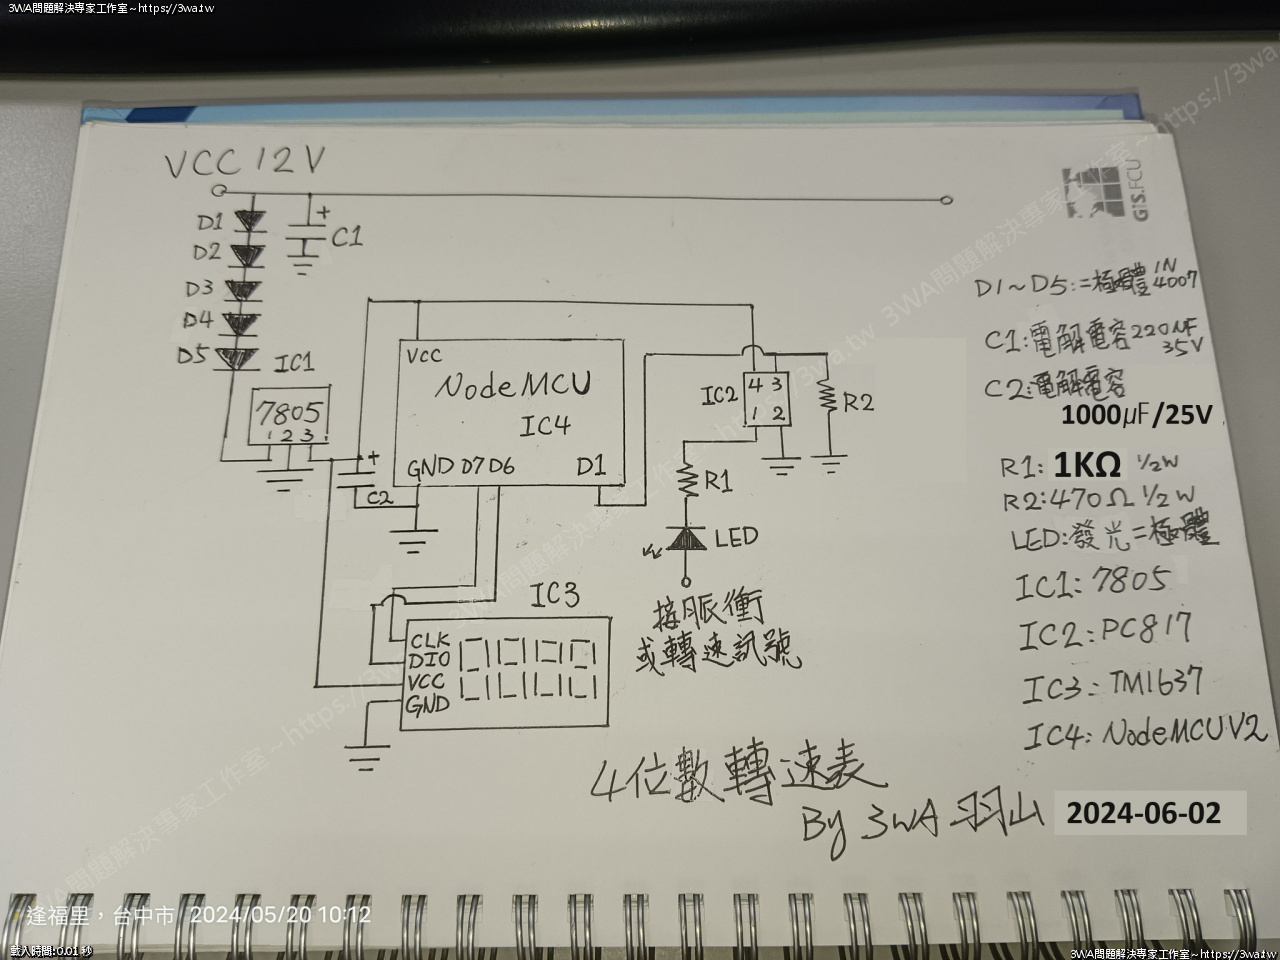 3WA問題解決專家工作室~https://3wa.tw
3WA問題解決專家工作室~https://3wa.tw
VCC 12V
D1
D2
D3
D4
D5
C1
IC1
7805
1 2 3
C2
VCC
NodeMCU
IC4
GND D7 D6
D1
IC2
4 3
1 2
R2
R1
LED
接脈衝
或轉速訊號
IC3
CLK
DIO
VCC
GND
GIS.FCU
D1~D5:二極體 1N 4007
C1:電解電容 220µF 35V
C2:電解電容
1000µF/25V
R1: 1KΩ 1/2W
R2:470Ω 1/2W
LED:發光二極體
IC1: 7805
IC2: PC817
IC3: TM1637
IC4: NodeMCU V2
4位數轉速表
By 3WA 羽山 2024-06-02
3WA問題解決專家工作室~https://3wa.tw
逢福里,台中市 2024/05/20 10:12
載入時間:0.01 秒
3WA問題解決專家工作室~https://3wa.tw